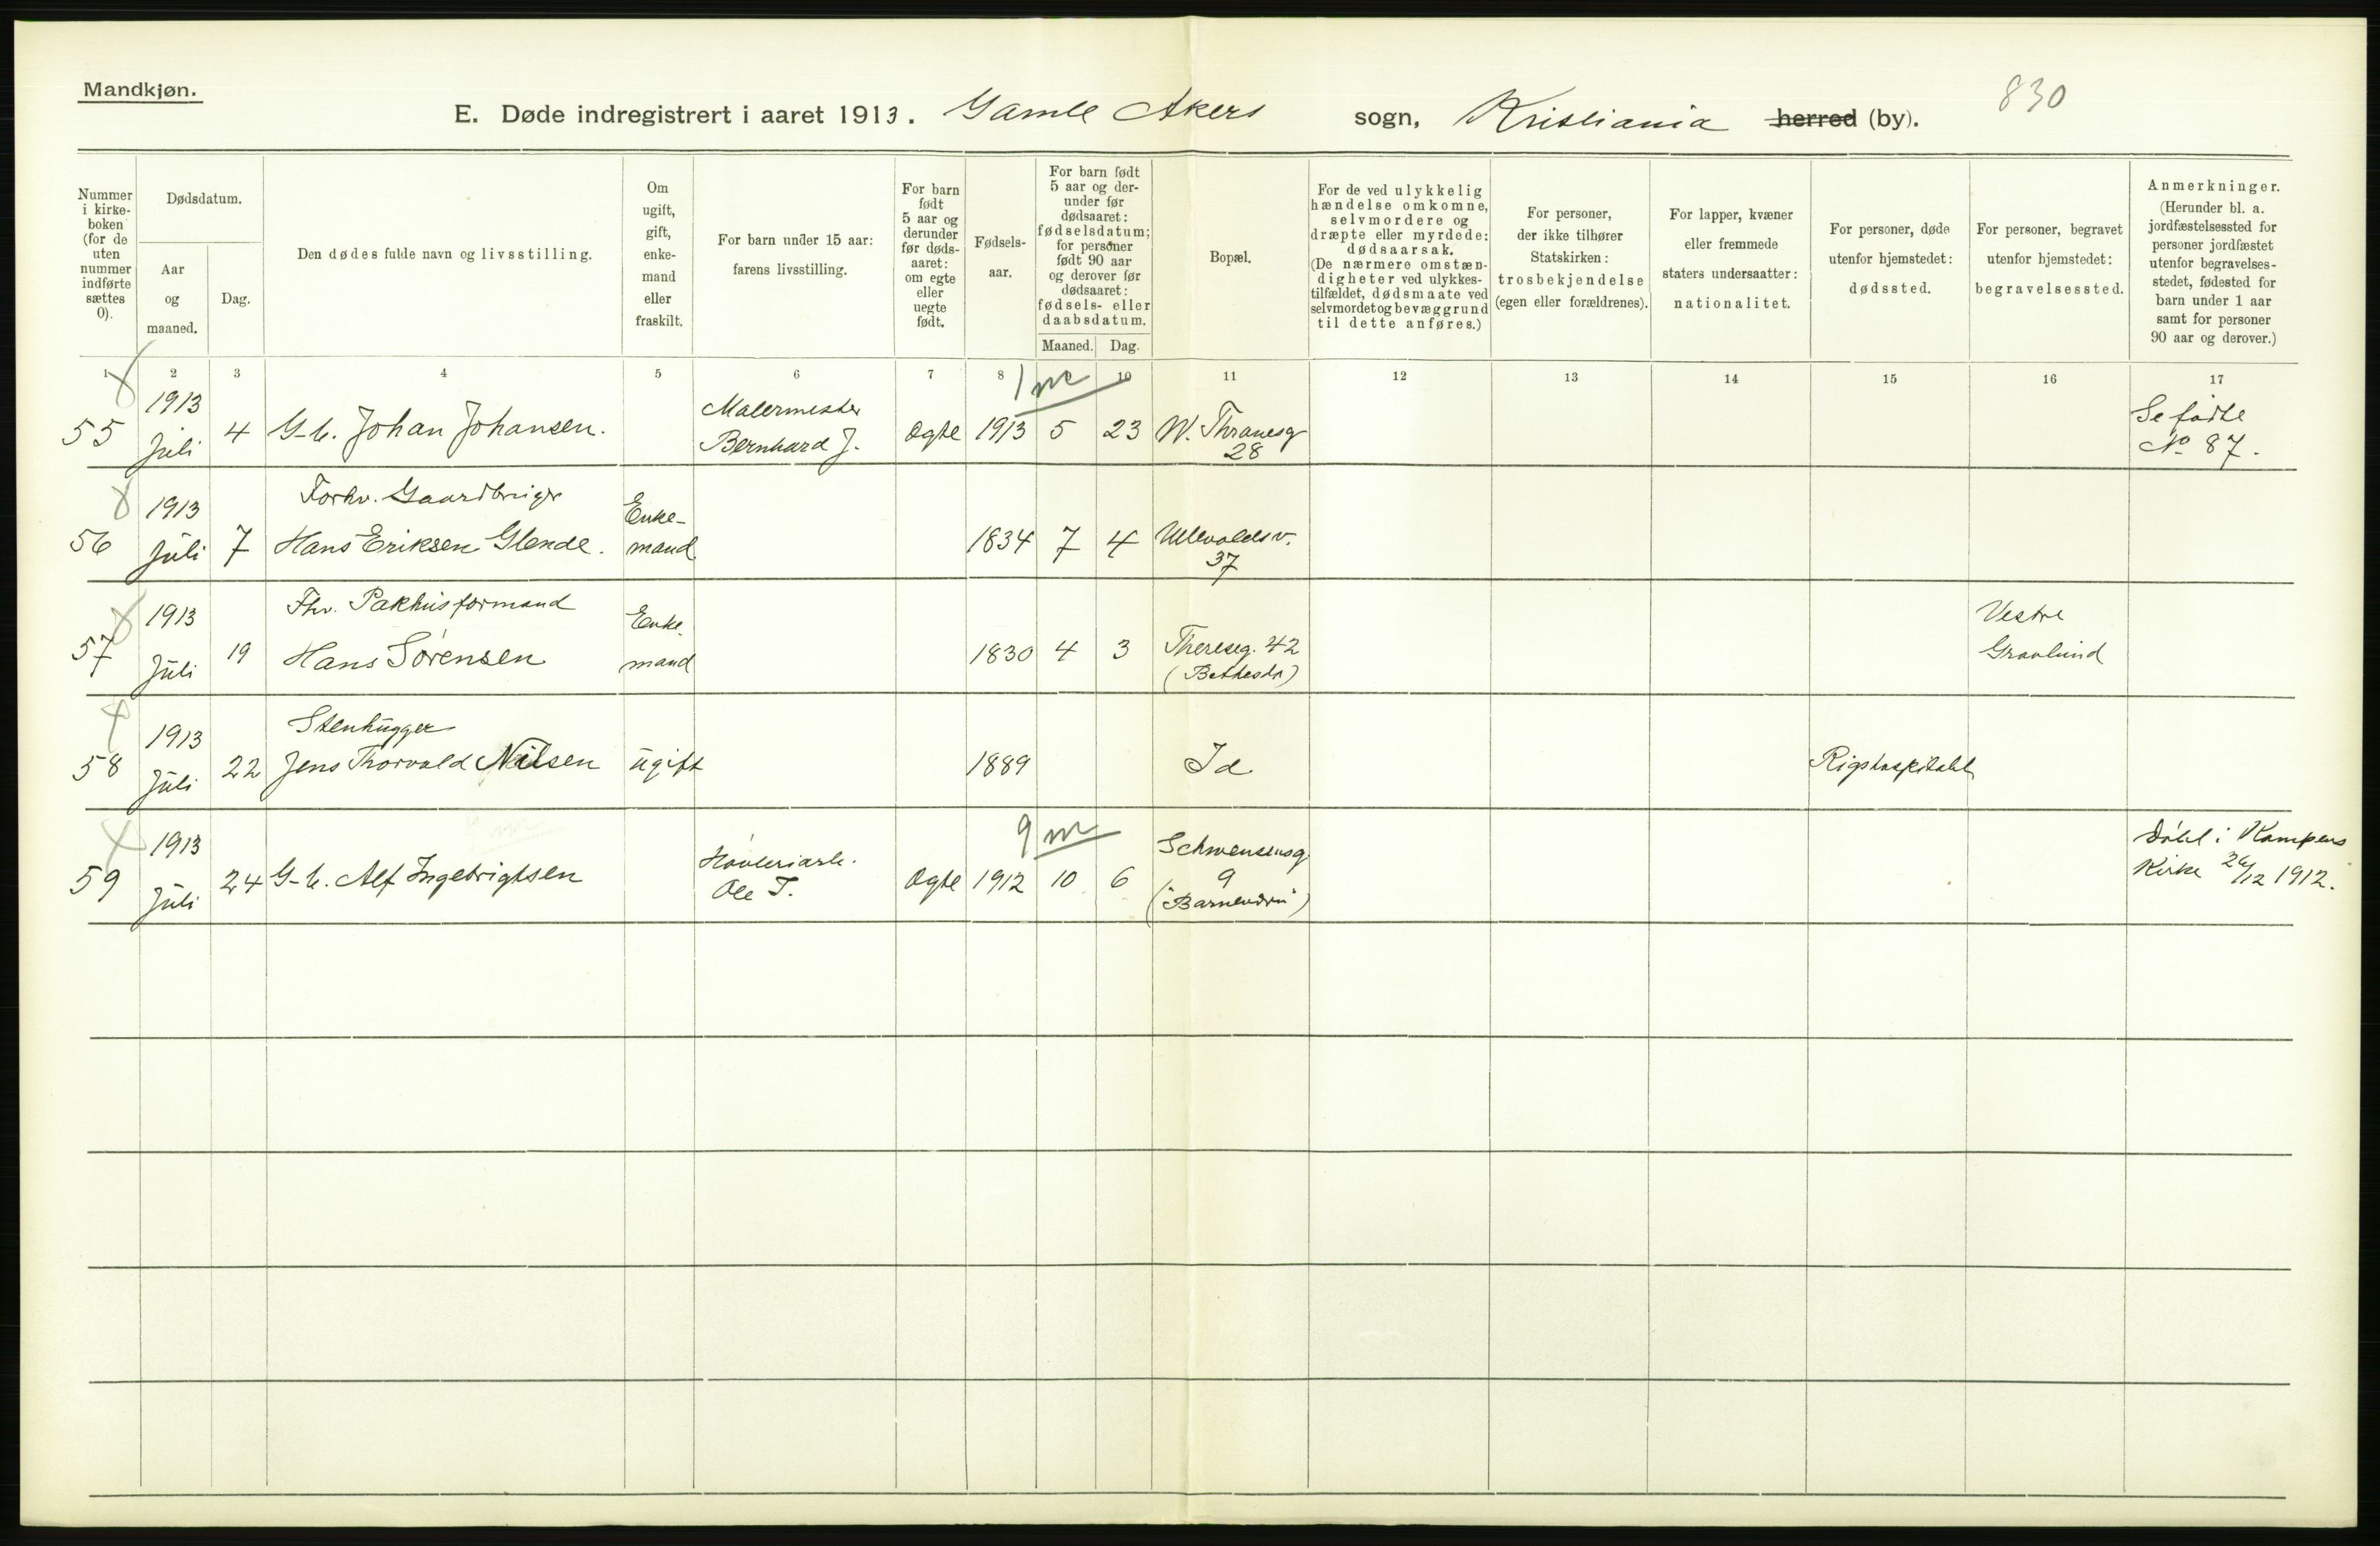 Mandkjøn.
E. Døde indregistrert i aaret 1913. Gamle Akers sogn, Kristiania herred (by). 830
Nummer i kirke-boken (for de uten nummer indførte sættes 0).
Dødsdatum.
Aar og maaned.
Dag.
Den dødes fulde navn og livsstilling.
Om ugift, gift, enke-mand eller fraskilt.
For barn under 15 aar: farens livsstilling.
For barn født 5 aar og derunder før døds-aaret: om egte eller uegte født.
Fødsels-aar.
For barn født 5 aar og der-under før dødsaaret: fødselsdatum; for personer født 90 aar og derover før dødsaaret: fødsels- eller daabsdatum.
Maaned. Dag.
Bopæl.
For de ved ulykkelig hændelse omkomne, selvmordere og dræpte eller myrdede: dødsaarsak. (De nærmere omstæn-digheter ved ulykkes-tilfældet, dødsmaate ved selvmordet og bevæggrund til dette anføres.)
For personer, der ikke tilhører Statskirken: trosbekjendelse (egen eller forældrenes).
For lapper, kvæner eller fremmede staters undersaatter: nationalitet.
For personer, døde utenfor hjemstedet: dødssted.
For personer, begravet utenfor hjemstedet: begravelsessted.
Anmerkninger. (Herunder bl. a. jordfæstelsessted for personer jordfæstet utenfor begravelses-stedet, fødested for barn under 1 aar samt for personer 90 aar og derover.)
1 2 3 4 5 6 7 8 9 10 11 12 13 14 15 16 17
1 m
1913 Malermester Se fødte
55 Juli 4 G-b. Johan Johansen. Bernhard J. Ogte 1913 5 23 W. Thranesg 28 No 87.
1913 Forhv. Gaardbruger Enke-
56 Juli 7 Hans Eriksen Glende. mand 1834 7 4 Ullevoldsv. 37
1913 Fhv. Pakhusformand Enke. Vestre
57 Juli 19 Hans Sørensen mand 1830 4 3 Thereseg. 42 (Bethesda) Gravlund
1913 Stenhugger
58 Juli 22 Jens Thorvald Nilsen ugift 1889 Id Rigshospitalet
9 m
1913 Høvleriarb. Schwensensg Døbt i Kampens
59 Juli 24 G-b. Alf Ingebrigtsen Ole I. Ogte 1912 10 6 9 Kirke 26/12 1912.